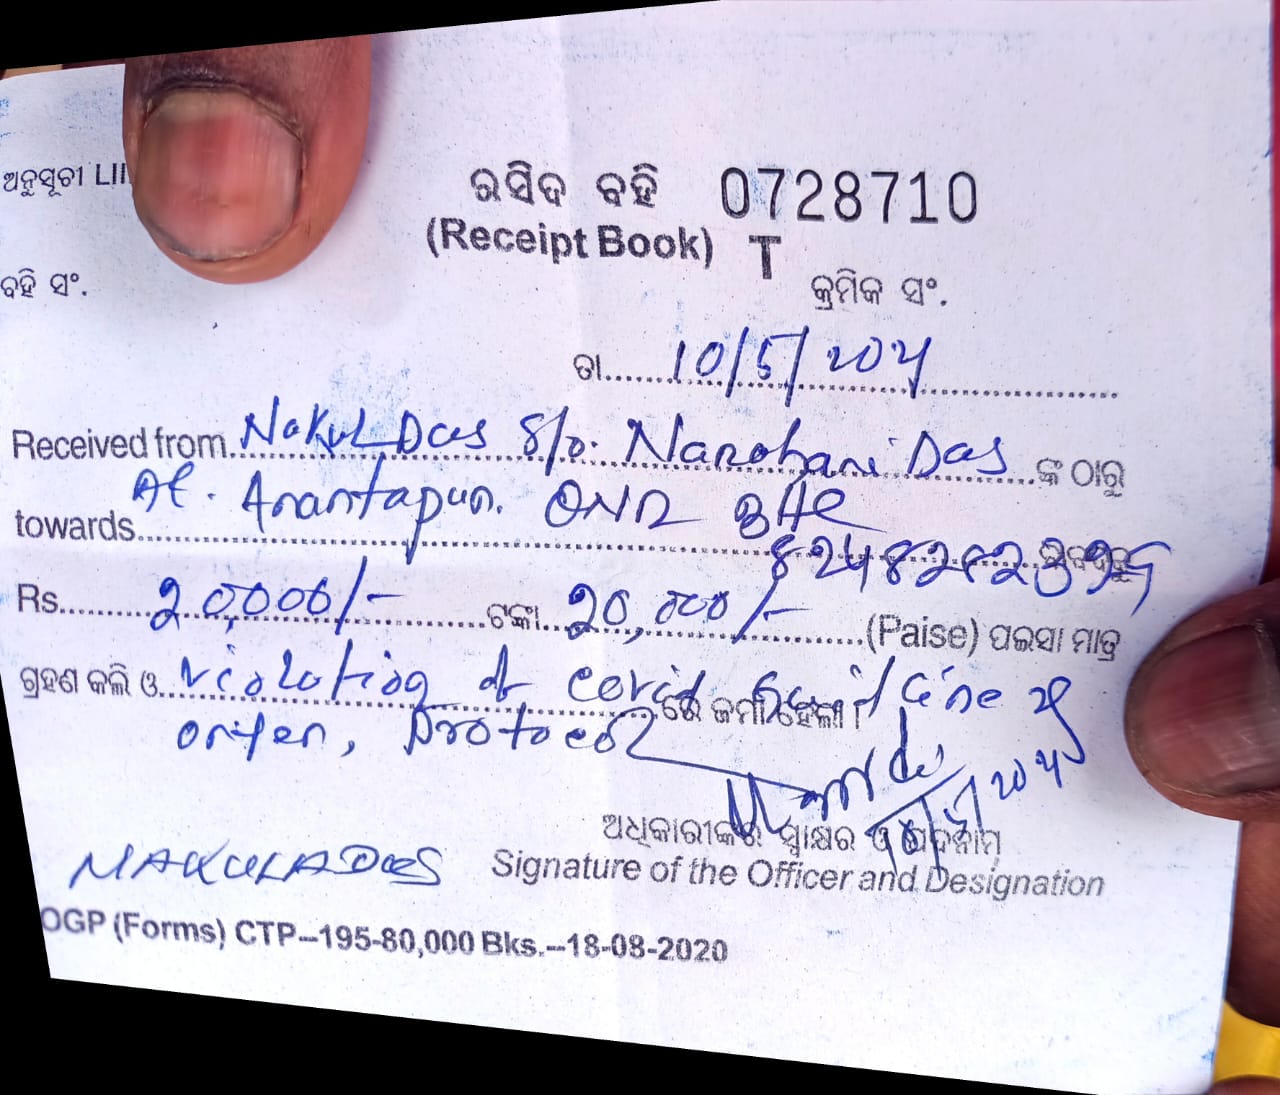 ଅନୁସୂଚୀ LII
ରସିଦ ବହି 0728710
(Receipt Book) T
ବହି ସଂ. କ୍ରମିକ ସଂ.
ତା..... 10/5/2021
Received from Nakul Das S/o. Narohari Das ଙ୍କ ଠାରୁ
At. Anantapur.
towards
Rs. 20,000/- ଟଙ୍କା 20,000/- (Paise) ପଇସା ମାତ୍ର
ଗ୍ରହଣ କଲି ଓ violation of covid guideline ରେ ଜମା ହେଲା ।
protocol
ଅଧିକାରୀଙ୍କର ସ୍ୱାକ୍ଷର ଓ ପଦନାମ
Signature of the Officer and Designation
NAKULA Das
OGP (Forms) CTP–195-80,000 Bks.–18-08-2020